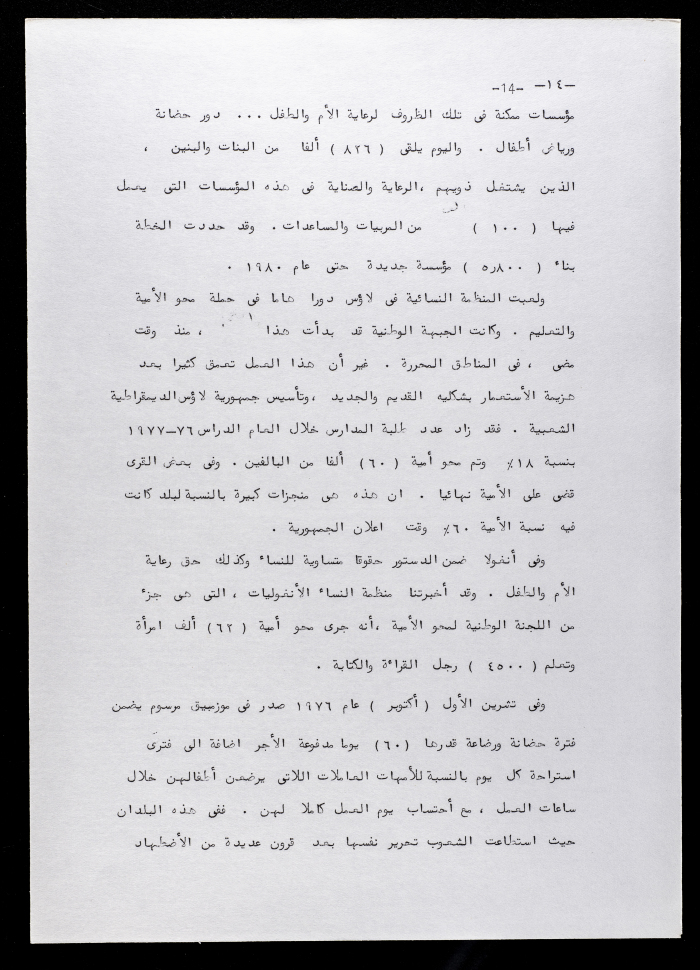 -١٤- -14-
مؤسسات ممكنة فى تلك الظروف لرعاية الأم والطفل ... دور حضانة
ورياض أطفال . واليوم يلقى ( ٨٢٦ ) ألفا من البنات والبنين ،
الذين يشتغل ذويهم ،الرعاية والصناية فى هذه المؤسسات التى يعمل
فيها ( ١٠٠ ) من المربيات والمساعدات . وقد حددت الخطة
بناء ( ٥٫٨٠٠ ) مؤسسة جديدة حتى عام ١٩٨٠ .
ولعبت المنظمة النسائية فى لاؤس دورا هاما فى حملة محو الأمية
والتعليم . وكانت الجبهة الوطنية قد بدأت هذا ، منذ وقت
مضى ، فى المناطق المحررة . غير أن هذا العمل تعمق كثيرا بعد
هزيمة الأستعمار بشكليه القديم والجديد ،وتأسيس جمهورية لاؤس الديمقراطية
الشعبية . فقد زاد عدد طلبة المدارس خلال العام الدراس ٧٦-١٩٧٧
بنسبة ١٨٪ وتم محو أمية ( ٦٠ ) ألفا من البالفين . وفى بعض القرى
قضى على الأمية نهائيا . ان هذه هى منجزات كبيرة بالنسبة لبلد كانت
فيه نسبة الأمية ٦٠٪ وقت اعلان الجمهورية .
وفى أنفولا ضمن الدستور حقوقا متساوية للنساء وكذلك حق رعاية
الأم والطفل . وقد أخبرتنا منظمة النساء الأنفوليات ، التى هى جزء
من اللجنة الوطنية لمحو الأمية ،أنه جرى محو أمية ( ٦٢ ) ألف امرأة
وتعلم ( ٤٥٠٠ ) رجل القراءة والكتابة .
وفى تشرين الأول ( أكتوبر ) عام ١٩٧٦ صدر فى موزمبيق مرسوم يضمن
فترة حضانة ورضاعة قدرها (٦٠) يوما مدفوعة الأجر اضافة الى فترى
استراحة كل يوم بالنسبة للأمهات العاملات اللاتى يرضعن أطفالهن خلال
ساعات العمل ، مع أحتساب يوم العمل كاملا لهن . ففى هذه البلدان
حيث استطاعت الشعوب تحرير نفسها بعد قرون عديدة من الأضطهاد